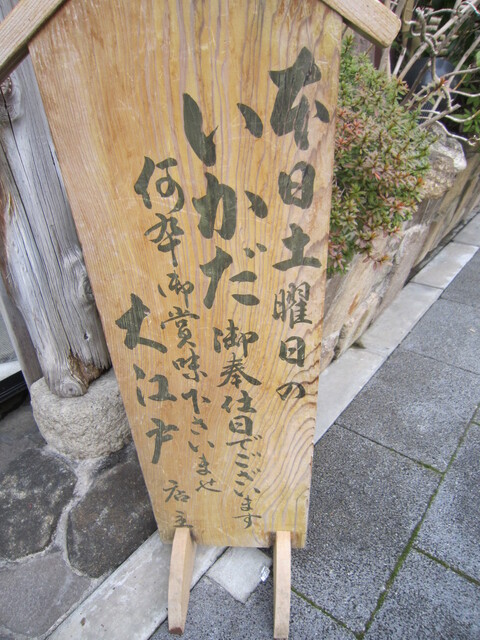 本日土曜日の
いかだ御奉仕日でございます
何卒御賞味下さいませ
大江戸
店主